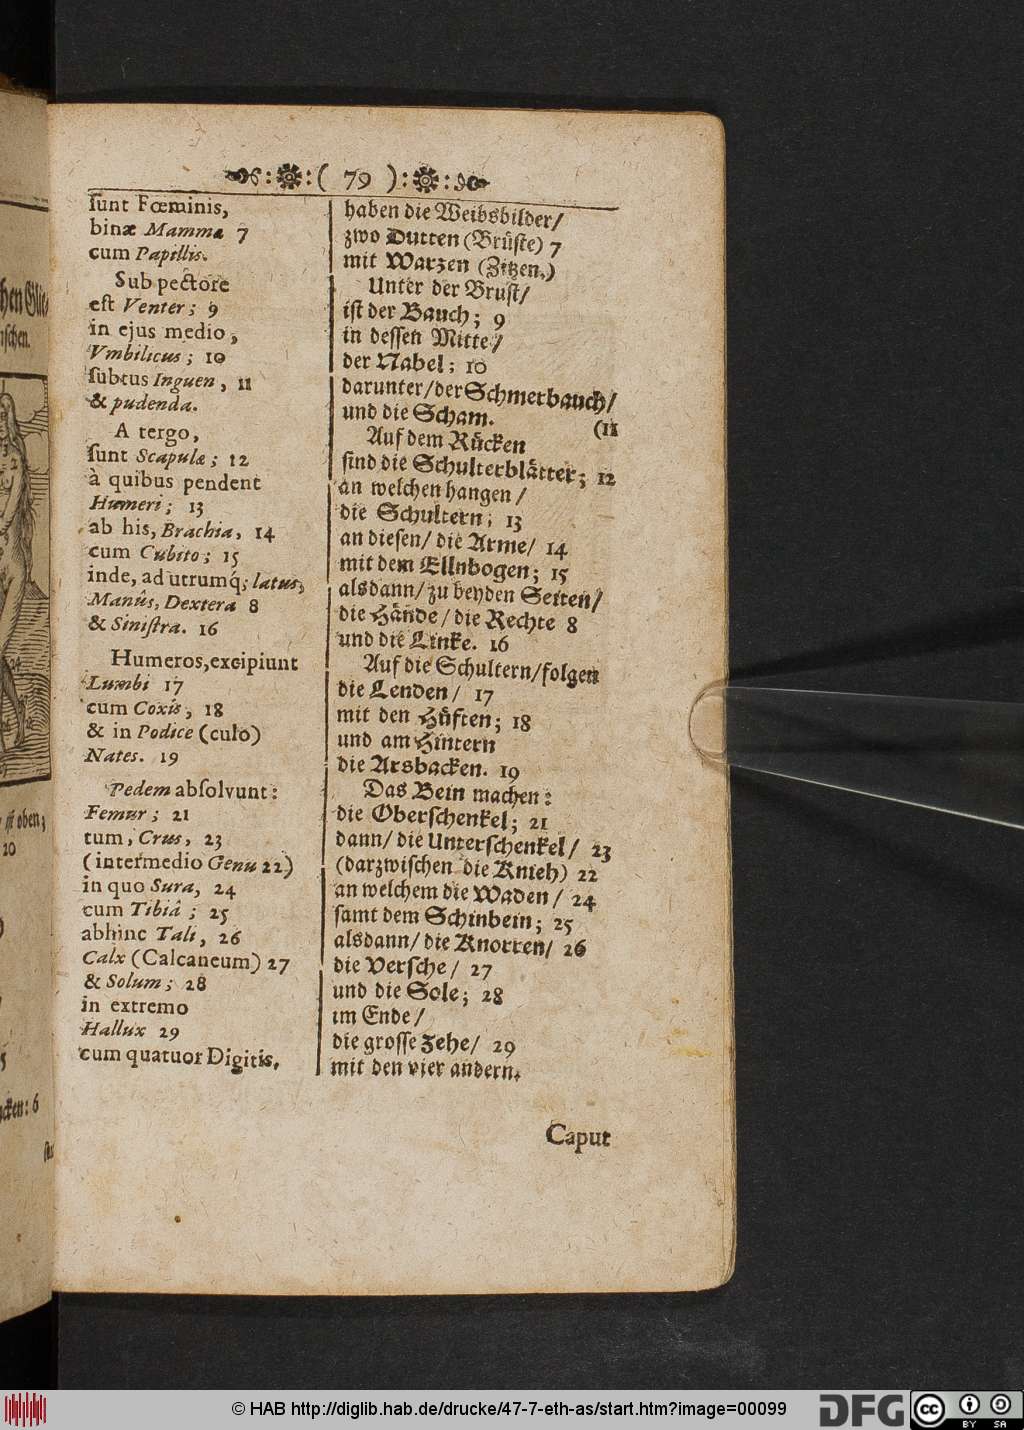 ( 79 )
ſunt Fœminis,
binæ Mammæ 7
cum Papillis.
Sub pectore
eſt Venter; 9
in ejus medio,
Vmbilicus; 10
ſubtus Inguen, 11
& pudenda.
A tergo,
ſunt Scapulæ; 12
à quibus pendent
Humeri; 13
ab his, Brachia, 14
cum Cubito; 15
inde, ad utrumq́; latus,
Manûs, Dextera 8
& Siniſtra. 16
Humeros, excipiunt
Lumbi 17
cum Coxis, 18
& in Podice (culo)
Nates. 19
Pedem abſolvunt:
Femur; 21
tum, Crus, 23
(intermedio Genu 22)
in quo Sura, 24
cum Tibiâ; 25
abhinc Tali, 26
Calx (Calcaneum) 27
& Solum; 28
in extremo
Hallux 29
cum quatuor Digitis.
haben die Weibsbilder/
zwo Dutten (Brüſte) 7
mit Warzen (Zitzen.)
Unter der Bruſt/
iſt der Bauch; 9
in deſſen Mitte/
der Nabel; 10
darunter/ der Schmerbauch/
und die Scham. (11
Auf dem Rücken
ſind die Schulterblätter; 12
an welchen hangen/
die Schultern; 13
an dieſen/ die Arme/ 14
mit dem Ellnbogen; 15
alsdann/ zu beyden Seiten/
die Hände/ die Rechte 8
und die Linke. 16
Auf die Schultern/ folgen
die Lenden/ 17
mit den Hüften; 18
und am Hintern
die Arsbacken. 19
Das Bein machen:
die Oberſchenkel; 21
dann/ die Unterſchenkel/ 23
(darzwiſchen die Knieh) 22
an welchem die Waden/ 24
ſamt dem Schinbein; 25
alsdann/ die Knorren/ 26
die Verſche/ 27
und die Sole; 28
im Ende/
die groſſe Zehe/ 29
mit den vier andern.
Caput
© HAB http://diglib.hab.de/drucke/47-7-eth-as/start.htm?image=00099
DFG
cc BY SA